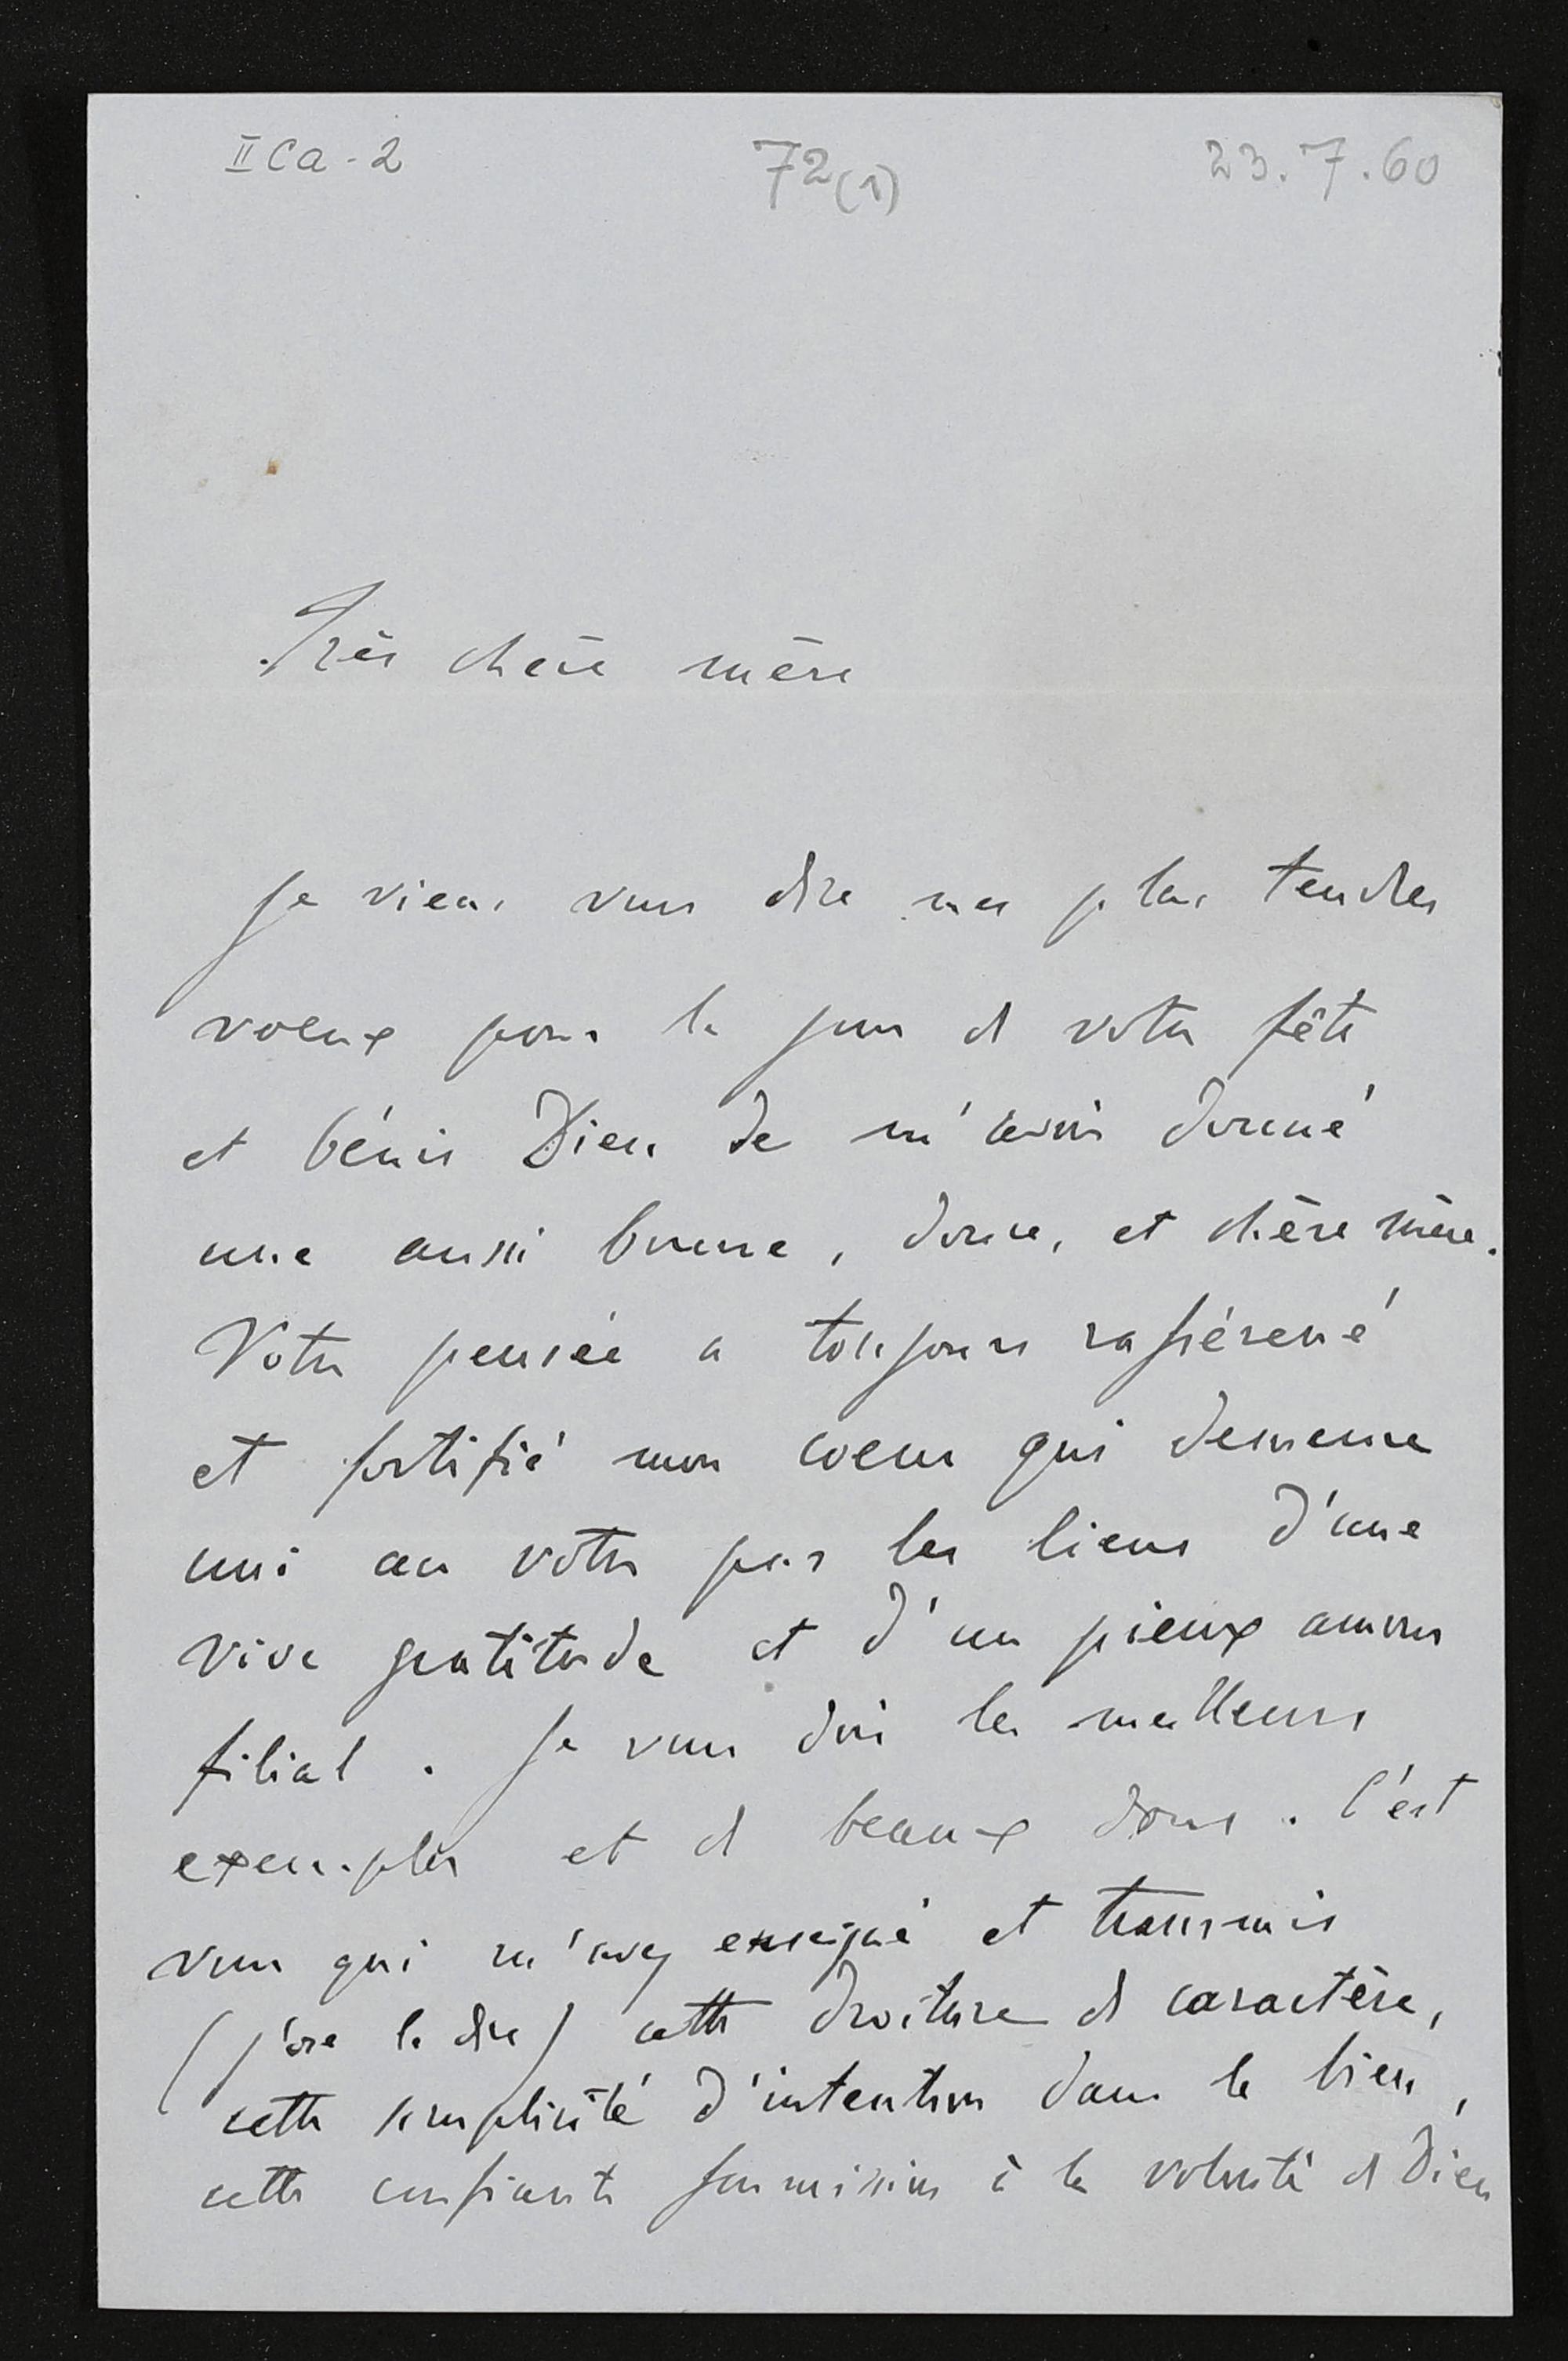 II Ca-2 72(1) 23.7.60
Très chère mère
Je viens vous dire mes plus tendres
voeux pour le jour de votre fête
et bénis Dieu de m'avoir donné
une aussi bonne, douce, et chère mère.
Votre pensée a toujours rasséréné
et fortifié mon coeur qui demeure
uni au votre par les liens d'une
vive gratitude et d'un pieux amour
filial. Je vous dois les meilleurs
exemples et de beaux dons. C'est
vous qui m'avez enseigné et transmis
(j'ose le dire) cette droiture de caractère,
cette simplicité d'intention dans le bien,
cette confiante soumission à la volonté de Dieu